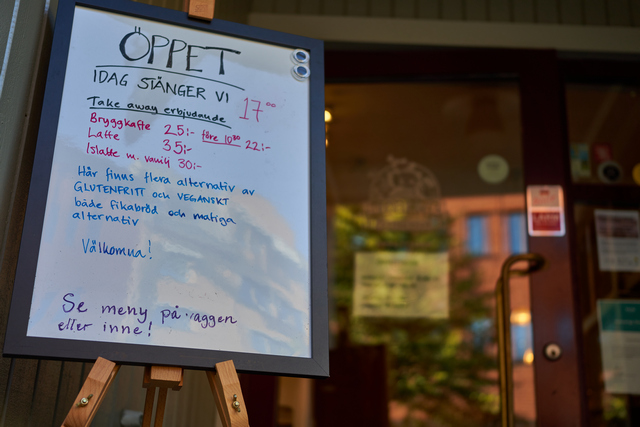 ÖPPET
IDAG STÄNGER VI 17⁰⁰
Take away erbjudande
Bryggkaffe 25:- före 10³⁰ 22:-
Latte 35:-
Islatte m. vanilj 30:-
Här finns flera alternativ av
GLUTENFRITT och VEGANSKT
både fikabröd och matiga
alternativ
Välkomna!
Se meny på väggen
eller inne!